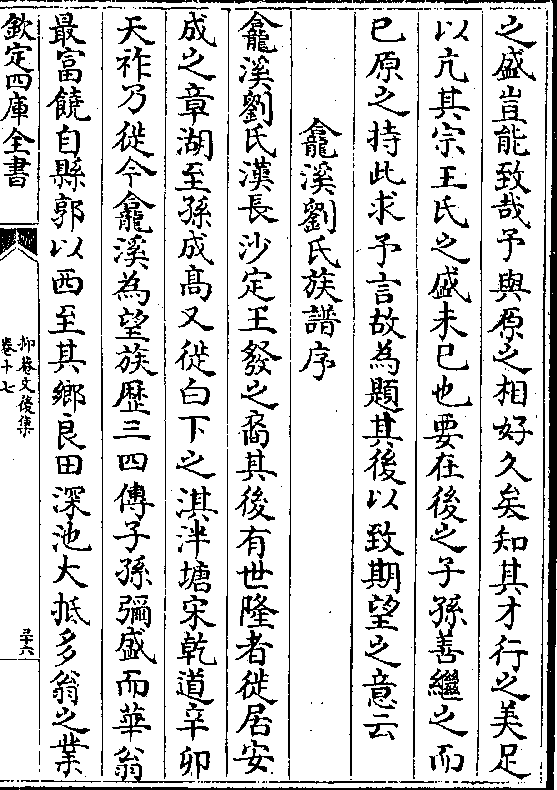 之盛豈能致哉予與原之相好久矣知其才行之美足
以亢其宗王氏之盛未已也要在後之子孫善繼之而
已原之持此求予言故為題其後以致期望之意云
龕溪劉氏族譜序
龕溪劉氏漢長沙定王發之裔其後有世隆者徙居安
成之章湖至孫成髙又徙白下之淇泮塘宋乾道辛卯
天祚乃徙今龕溪為望族歴三四傳子孫彌盛而華翁
最富饒自縣郭以西至其鄉良田深池大抵多翁之業
欽定四庫全書
抑菴文後集
卷十七
三十六